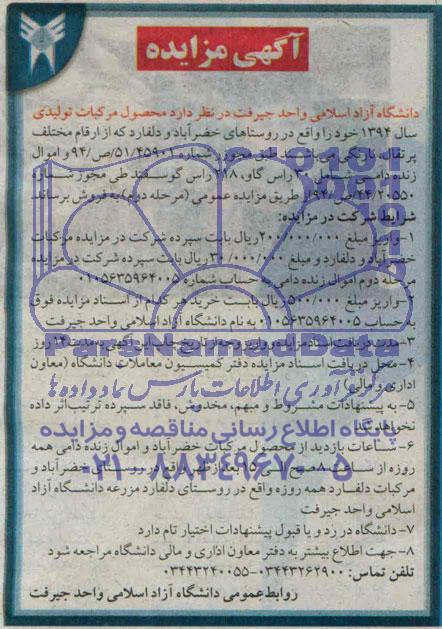 آگهی مزایده
دانشگاه آزاد اسلامی واحد جیرفت در نظر دارد محصول مرکبات تولیدی
سال ۱۳۹۴ خود را واقع در روستاهای خضرآباد و دلفارد که از ارقام مختلف
پرتقال، نارنگی می باشند طبق مجوز شماره ۵۱/۴۵۹۰۱/ص/۹۴ و اموال
زنده دامی شامل ۳۰ راس گاو، ۲۱۸ راس گوسفند طی مجوز شماره
۴۴/۲۰۵۵۰/ص/۹۴ از طریق مزایده عمومی (مرحله دوم) به فروش برساند.
شرایط شرکت در مزایده:
۱-واریز مبلغ ۲۰۰/۰۰۰/۰۰۰ریال بابت سپرده شرکت در مزایده مرکبات
خضرآباد و دلفارد و مبلغ ۳۰/۰۰۰/۰۰۰ ریال بابت سپرده شرکت در مزایده
مرحله دوم اموال زنده دامی به حساب شماره ۰۱۰۵۶۳۵۹۶۴۰۰۵
۲-واریز مبلغ ۵۰۰/۰۰۰ریال بابت خرید هر کدام از اسناد مزایده فوق
به حساب ۰۱۰۵۶۳۵۹۶۴۰۰۵ به نام دانشگاه آزاد اسلامی واحد جیرفت
۳-مدت دریافت اسناد مزایده و واریز وجه از تاریخ چاپ این آگهی به مدت ۱۴ روز
۴-محل دریافت اسناد مزایده دفتر کمیسیون معاملات دانشگاه (معاون
اداری و مالی)
۵-به پیشنهادات مشروط و مبهم، مخدوش، فاقد سپرده ترتیب اثر داده
نخواهد شد
۶-ساعات بازدید از محصول مرکبات خضرآباد و اموال زنده دامی همه
روزه از ساعت ۸ صبح الی ۱۵ بعد از ظهر واقع در روستای خضرآباد و
مرکبات دلفارد همه روزه واقع در روستای دلفارد مزرعه دانشگاه آزاد
اسلامی واحد جیرفت
۷-دانشگاه در رد و یا قبول پیشنهادات اختیار تام دارد
۸-جهت اطلاع بیشتر به دفتر معاون اداری و مالی دانشگاه مراجعه شود
تلفن تماس: ۰۳۴۴۳۲۶۲۹۰۰-۰۳۴۴۳۲۴۰۰۵۵
روابط عمومی دانشگاه آزاد اسلامی واحد جیرفت
ParsNamadData
فرآوری اطلاعات پارس نماد داده ها
پایگاه اطلاع رسانی مناقصه و مزایده
۰۲۱-۸۸۳۴۹۶۷۰-۵